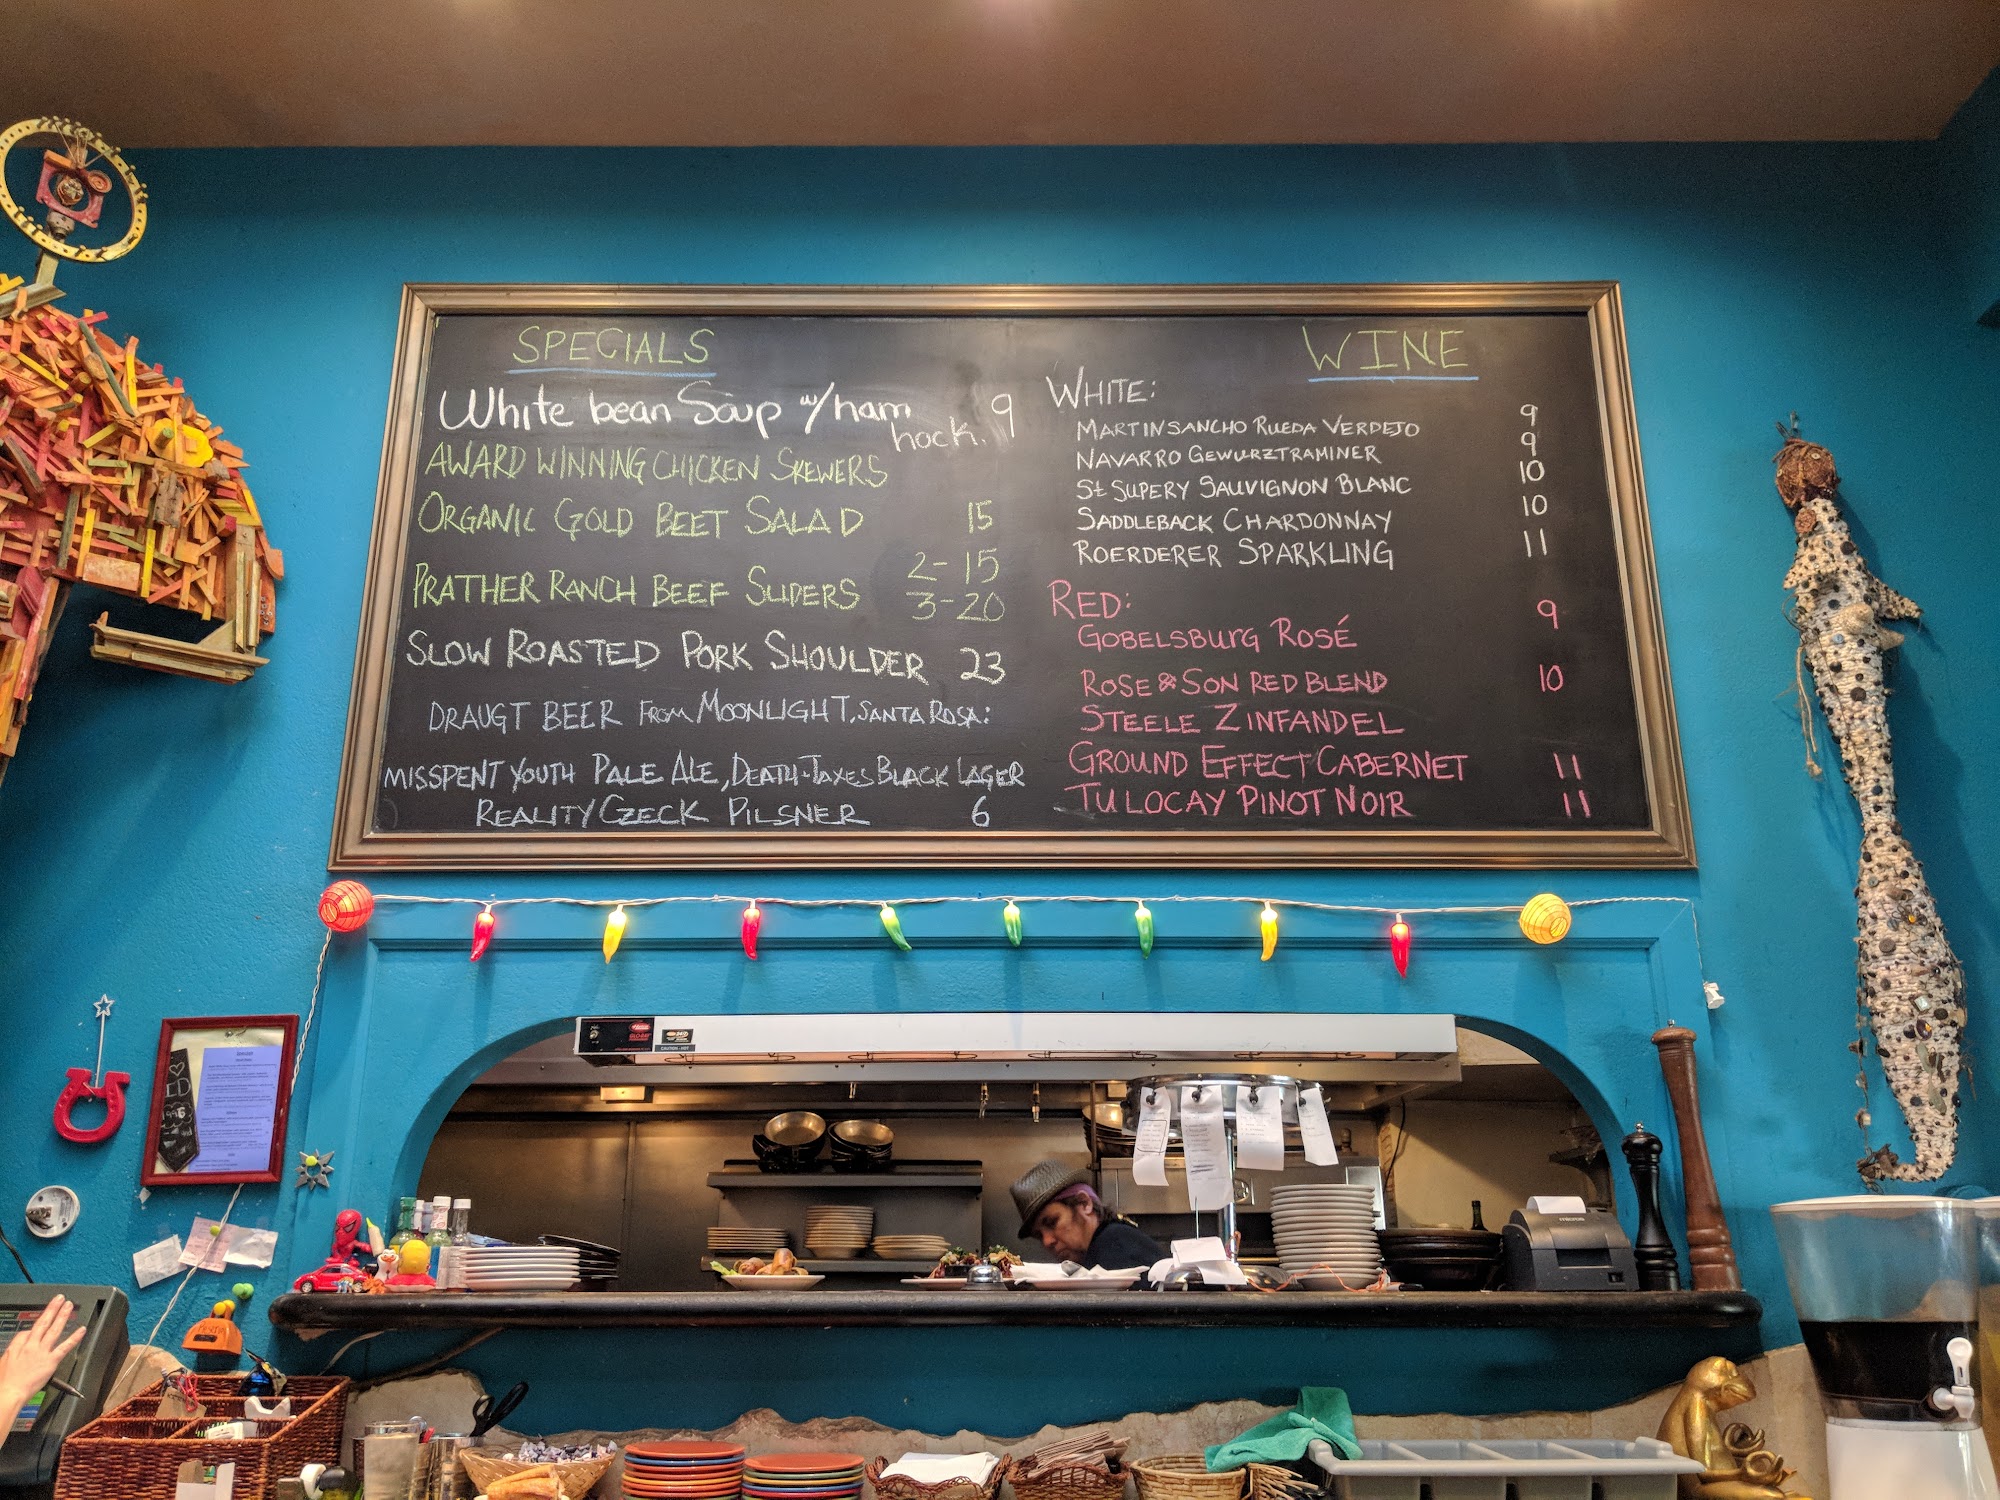 SPECIALS
White bean Soup w/ham 9
hock.
AWARD WINNING CHICKEN SKEWERS
ORGANIC GOLD BEET SALAD 15
2-15
PRATHER RANCH BEEF SLIDERS 3-20
SLOW ROASTED PORK SHOULDER 23
DRAUGT BEER FROM MOONLIGHT, SANTA ROSA:
MISSPENT YOUTH PALE ALE, DEATH-TAXES BLACK LAGER
REALITY CZECK PILSNER 6
WINE
WHITE:
MARTINSANCHO RUEDA VERDEJO 9
NAVARRO GEWURZTRAMINER 9
St SUPERY SAUVIGNON BLANC 10
SADDLEBACK CHARDONNAY 10
ROERDERER SPARKLING 11
RED:
GOBELSBURG ROSÉ 9
ROSE & SON RED BLEND 10
STEELE ZINFANDEL
GROUND EFFECT CABERNET 11
TULOCAY PINOT NOIR 11